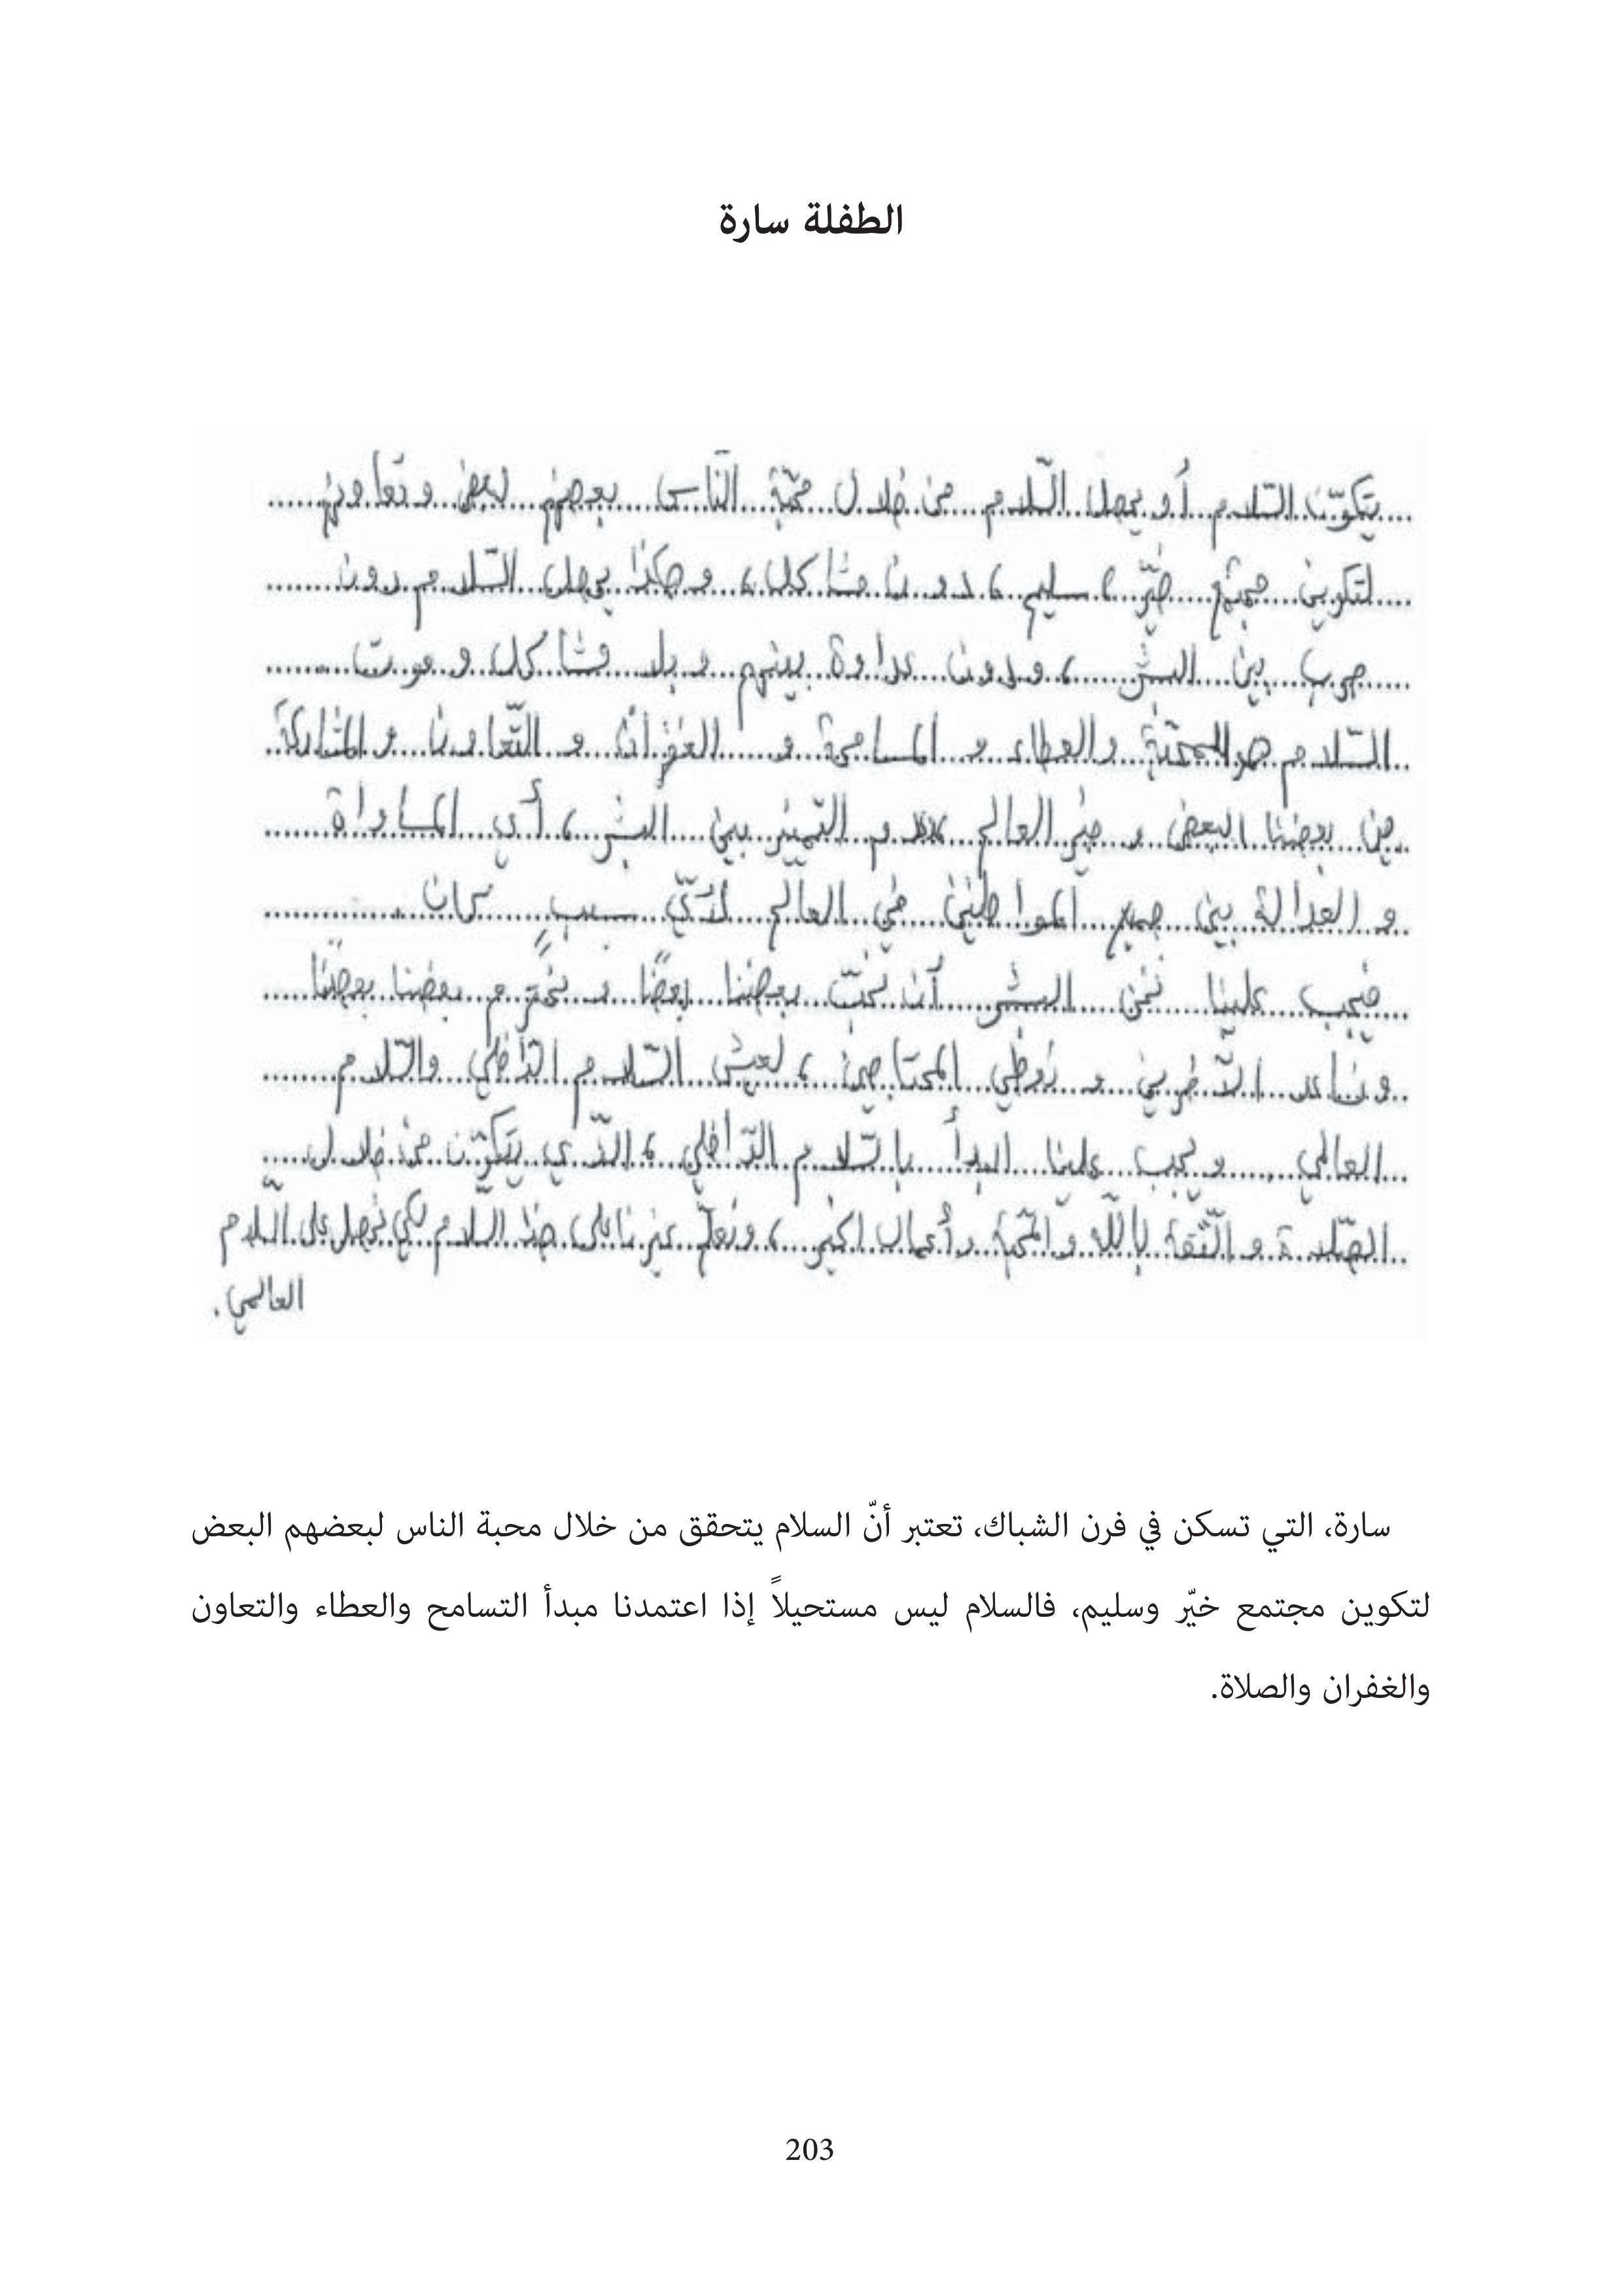 الطفلة سارة
يتكوّن السّلام أو يحصل السّلام من خلال محبّة النّاس بعضهم لبعض وتعاونهم
لتكوين مجتمع خيّر، سليم، دون مشاكل، وهكذا يحصل السّلام دون
حرب بين البشر، ودون عداوة بينهم وبلا مشاكل وموت
السّلام هو المحبّة والعطاء و المسامحة و الغفران و التّعاون و المشاركة
بين بعضنا البعض و خير العالم التّمييز بين البشر، أي المساواة
و العدالة بين جميع المواطنين في العالم لأيّ سبب كان
فيجب علينا نحن البشر أن نحبّ بعضنا بعضًا و نحترم بعضنا بعضًا
و نساعد الآخرين و نعطي المحتاجين، لعيش السّلام الدّاخلي والسّلام
العالمي و يجب علينا البدأ بالسّلام الدّاخلي، الّذي يتكوّن من خلال
الصّلاة و الثّقة بالله و المحبّة وأعمال الخير، ونعلّم غيرنا على هذا السّلام لكي نحصل على السّلام
العالمي.
سارة، التي تسكن في فرن الشباك، تعتبر أنّ السلام يتحقق من خلال محبة الناس لبعضهم البعض
لتكوين مجتمع خيّر وسليم، فالسلام ليس مستحيلاً إذا اعتمدنا مبدأ التسامح والعطاء والتعاون
والغفران والصلاة.
203